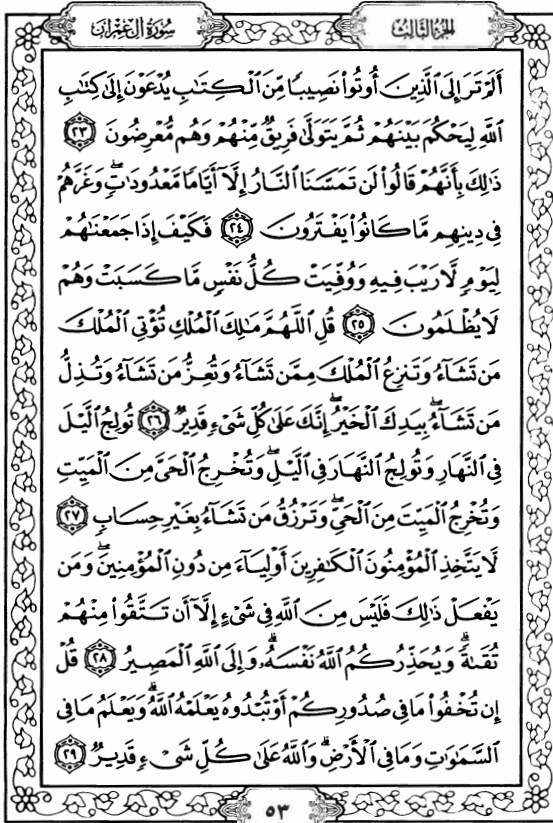 الجزء الثالث
سورة آل عمران
أَلَمْ تَرَ إِلَى الَّذِينَ أُوتُوا۟ نَصِيبًا مِّنَ ٱلْكِتَٰبِ يُدْعَوْنَ إِلَىٰ كِتَٰبِ
ٱللَّهِ لِيَحْكُمَ بَيْنَهُمْ ثُمَّ يَتَوَلَّىٰ فَرِيقٌ مِّنْهُمْ وَهُم مُّعْرِضُونَ ٢٣
ذَٰلِكَ بِأَنَّهُمْ قَالُوا۟ لَن تَمَسَّنَا ٱلنَّارُ إِلَّآ أَيَّامًا مَّعْدُودَٰتٍ ۖ وَغَرَّهُمْ
فِى دِينِهِم مَّا كَانُوا۟ يَفْتَرُونَ ٢٤ فَكَيْفَ إِذَا جَمَعْنَٰهُمْ
لِيَوْمٍ لَّا رَيْبَ فِيهِ وَوُفِّيَتْ كُلُّ نَفْسٍ مَّا كَسَبَتْ وَهُمْ
لَا يُظْلَمُونَ ٢٥ قُلِ ٱللَّهُمَّ مَٰلِكَ ٱلْمُلْكِ تُؤْتِى ٱلْمُلْكَ
مَن تَشَآءُ وَتَنزِعُ ٱلْمُلْكَ مِمَّن تَشَآءُ وَتُعِزُّ مَن تَشَآءُ وَتُذِلُّ
مَن تَشَآءُ ۖ بِيَدِكَ ٱلْخَيْرُ ۖ إِنَّكَ عَلَىٰ كُلِّ شَىْءٍ قَدِيرٌ ٢٦ تُولِجُ ٱلَّيْلَ
فِى ٱلنَّهَارِ وَتُولِجُ ٱلنَّهَارَ فِى ٱلَّيْلِ ۖ وَتُخْرِجُ ٱلْحَىَّ مِنَ ٱلْمَيِّتِ
وَتُخْرِجُ ٱلْمَيِّتَ مِنَ ٱلْحَىِّ ۖ وَتَرْزُقُ مَن تَشَآءُ بِغَيْرِ حِسَابٍ ٢٧
لَّا يَتَّخِذِ ٱلْمُؤْمِنُونَ ٱلْكَٰفِرِينَ أَوْلِيَآءَ مِن دُونِ ٱلْمُؤْمِنِينَ ۖ وَمَن
يَفْعَلْ ذَٰلِكَ فَلَيْسَ مِنَ ٱللَّهِ فِى شَىْءٍ إِلَّآ أَن تَتَّقُوا۟ مِنْهُمْ
تُقَىٰةً ۗ وَيُحَذِّرُكُمُ ٱللَّهُ نَفْسَهُۥ ۗ وَإِلَى ٱللَّهِ ٱلْمَصِيرُ ٢٨ قُلْ
إِن تُخْفُوا۟ مَا فِى صُدُورِكُمْ أَوْ تُبْدُوهُ يَعْلَمْهُ ٱللَّهُ ۗ وَيَعْلَمُ مَا فِى
ٱلسَّمَٰوَٰتِ وَمَا فِى ٱلْأَرْضِ ۗ وَٱللَّهُ عَلَىٰ كُلِّ شَىْءٍ قَدِيرٌ ٢٩
٥٣